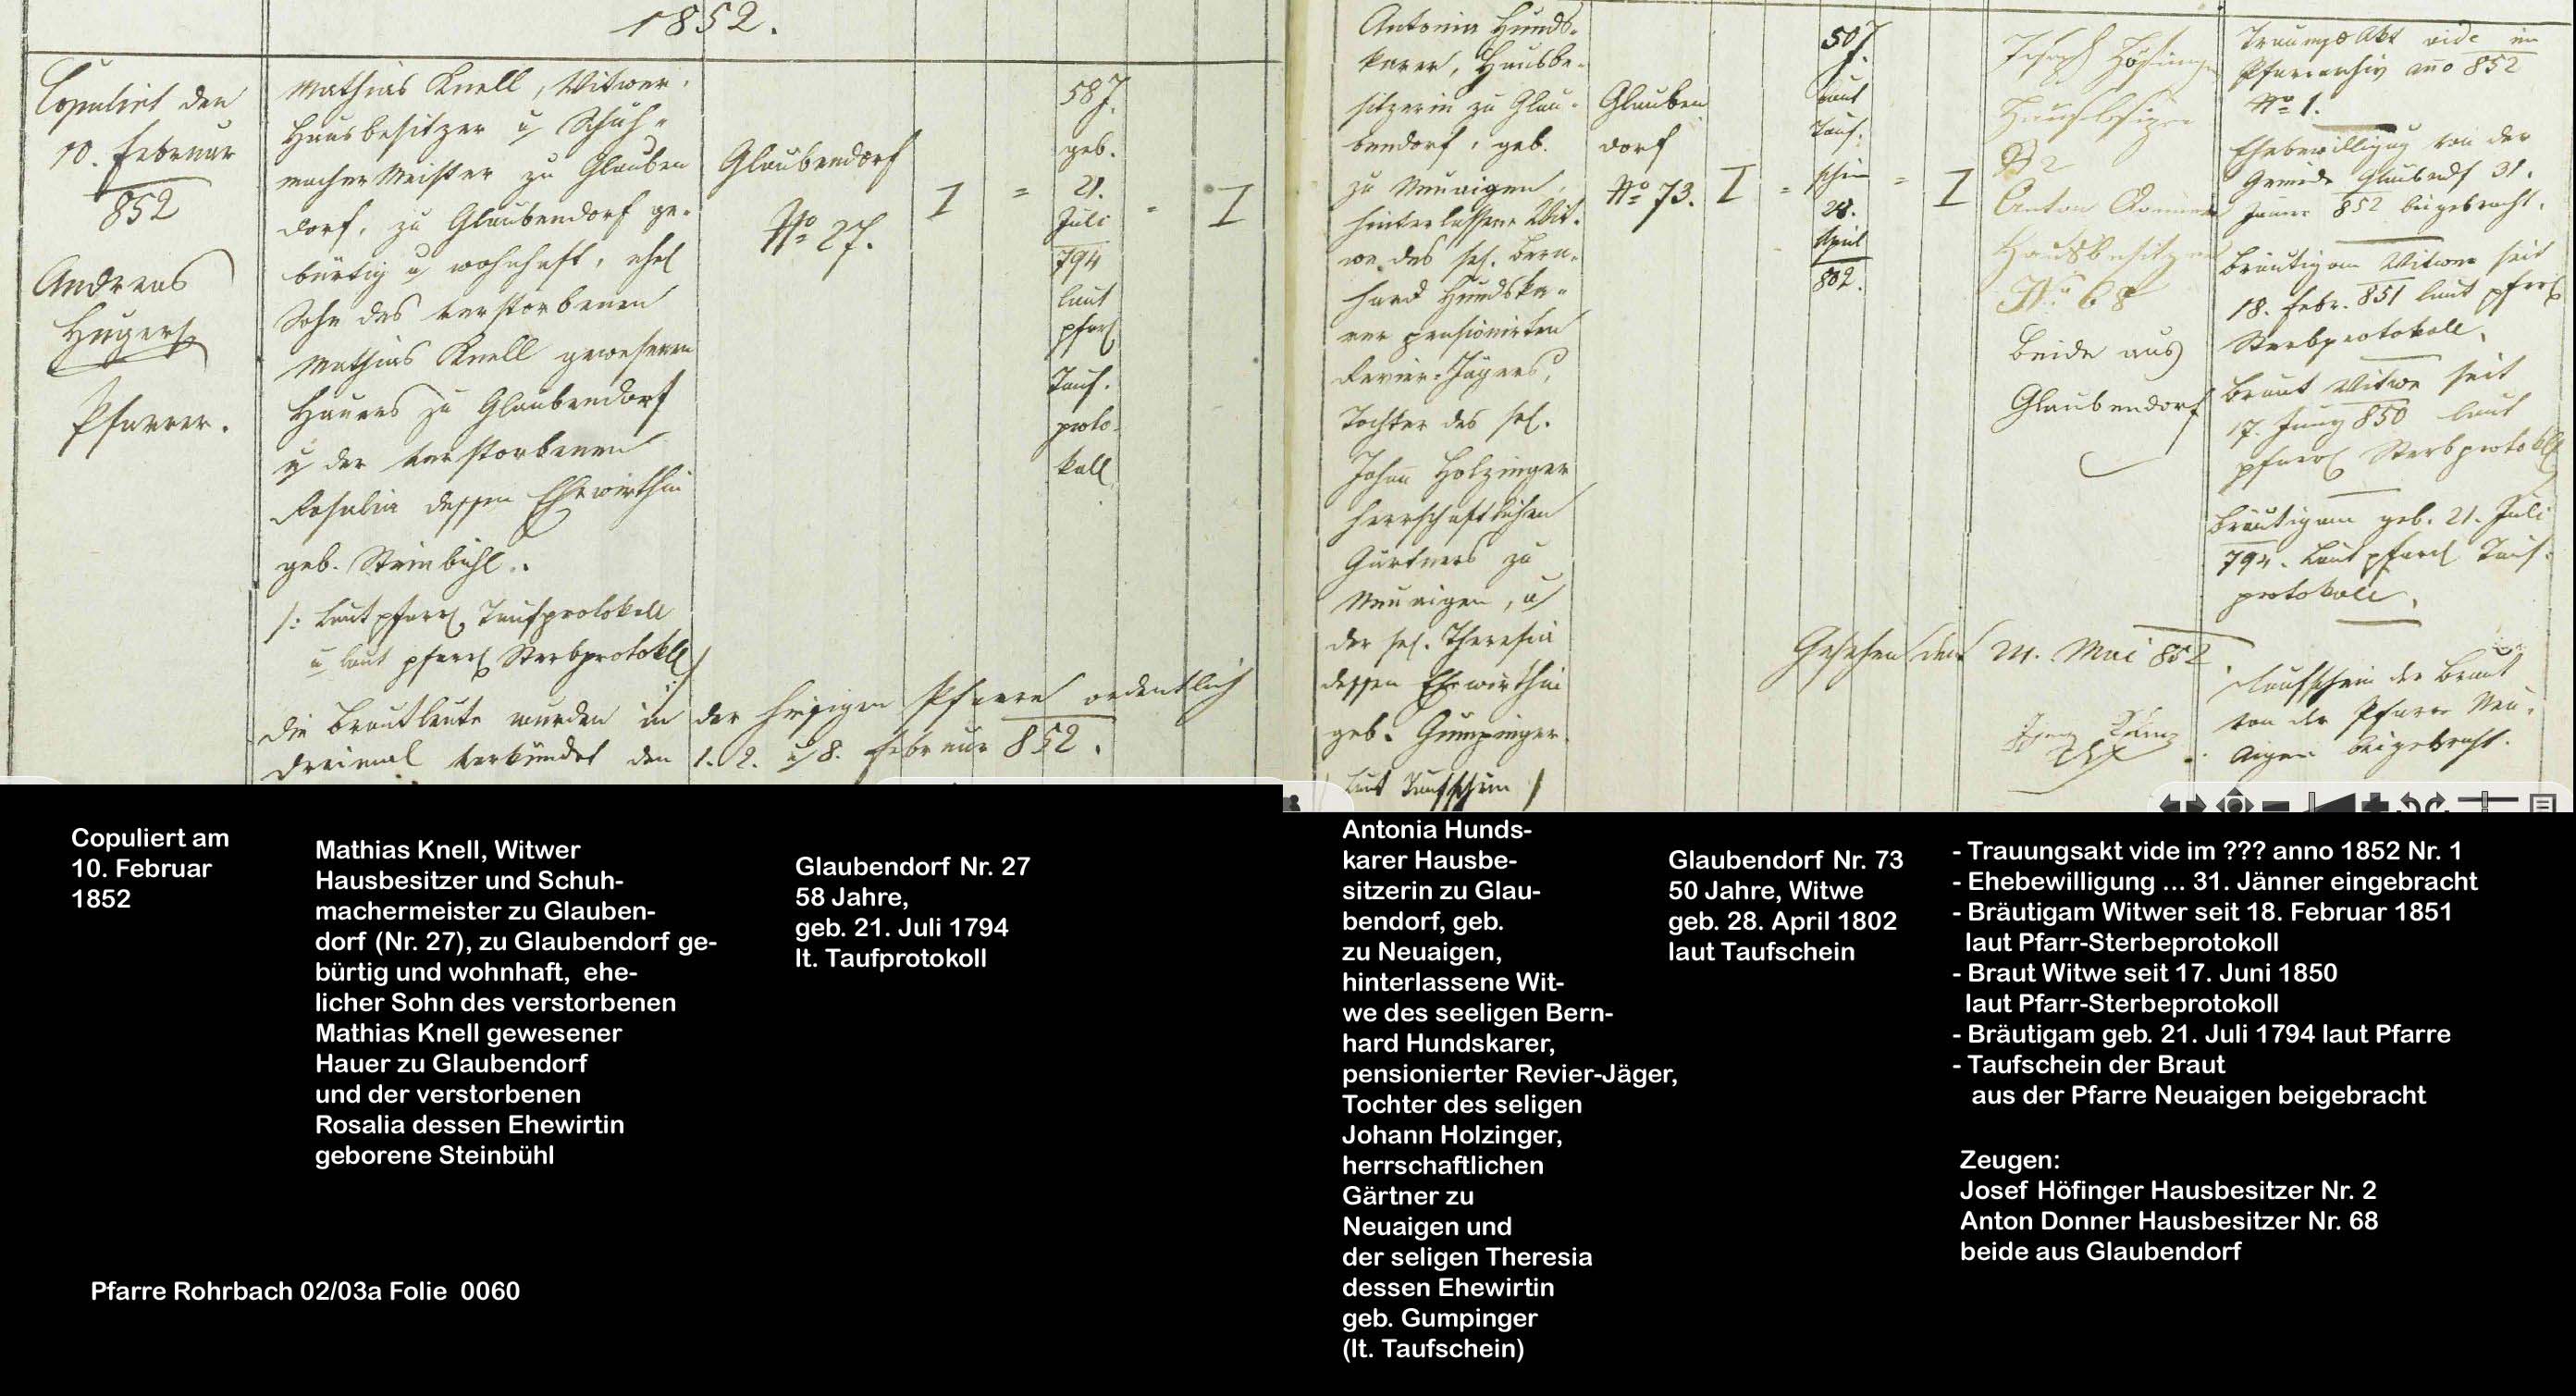 1852.
Copulirt den
10. Februar
852
Andreas
Pfarrer.
Mathias Knell, Witwer,
Hausbesitzer u Schuh-
macher Meister zu Glauben
dorf, zu Glaubendorf ge-
bürtig u wohnhaft, ehel
Sohn des verstorbenen
Mathias Knell gewesenen
Hauers zu Glaubendorf
u der verstorbenen
Rosalia dessen Ehewirthin
geb. Steinbühl.
/: Laut pfarrl Taufprotokoll
u laut pfarrl Sterbprotokoll
Die Brautleute wurden in der hiesigen Pfarre ordentlich
dreimal verkündet den 1. 2. u 8. Februar 852.
Glaubendorf
No 27.
I
=
58 J.
geb.
21.
Juli
794
laut
pfarl
Tauf-
proto-
koll
=
I
Antonia Hunds-
karer, Hausbe-
sitzerin zu Glau-
bendorf, geb.
zu Neuaigen,
hinterlassene Wit-
we des sel. Bern-
hard Hundska-
rer pensionirten
Revier-Jägers,
Tochter des sel.
Johan Holzinger
herrschaftlichen
Gärtners zu
Neuaigen, u
der sel. Theresia
dessen Ehewirthin
geb. Gumpinger.
Laut Taufschein /
Glauben
dorf
No 73.
I
=
50 J.
laut
Tauf-
schein
28.
April
802.
=
I
Joseph Höfinger
Hausbesizer
No 2
Anton
Hausbesitzer
No 68
beide aus
Glaubendorf
Gesehen den 21. Mai 852
Trauungs Akt vide im
Pfarrarchiv ano 852
No 1.
Ehebewilligung von der
Gemeide Glaubndf 31.
Jäner 852 beigebracht.
Bräutigam Witwer seit
18. Febr. 851 laut pfarrl
Sterbprotokoll.
Braut Witwe seit
17. Juny 850 laut
pfarrl Sterbprotokoll
Bräutigam geb. 21. Juli
794. Laut pfarrl Tauf-
protokoll.
Taufschein der Braut
von der Pfarre Neu-
aigen beigebracht.
Copuliert am
10. Februar
1852
Mathias Knell, Witwer
Hausbesitzer und Schuh-
machermeister zu Glauben-
dorf (Nr. 27), zu Glaubendorf ge-
bürtig und wohnhaft, ehe-
licher Sohn des verstorbenen
Mathias Knell gewesener
Hauer zu Glaubendorf
und der verstorbenen
Rosalia dessen Ehewirtin
geborene Steinbühl
Glaubendorf Nr. 27
58 Jahre,
geb. 21. Juli 1794
lt. Taufprotokoll
Pfarre Rohrbach 02/03a Folie 0060
Antonia Hunds-
karer Hausbe-
sitzerin zu Glau-
bendorf, geb.
zu Neuaigen,
hinterlassene Wit-
we des seeligen Bern-
hard Hundskarer,
pensionierter Revier-Jäger,
Tochter des seligen
Johann Holzinger,
herrschaftlichen
Gärtner zu
Neuaigen und
der seligen Theresia
dessen Ehewirtin
geb. Gumpinger
(lt. Taufschein)
Glaubendorf Nr. 73
50 Jahre, Witwe
geb. 28. April 1802
laut Taufschein
- Trauungsakt vide im ??? anno 1852 Nr. 1
- Ehebewilligung ... 31. Jänner eingebracht
- Bräutigam Witwer seit 18. Februar 1851
laut Pfarr-Sterbeprotokoll
- Braut Witwe seit 17. Juni 1850
laut Pfarr-Sterbeprotokoll
- Bräutigam geb. 21. Juli 1794 laut Pfarre
- Taufschein der Braut
aus der Pfarre Neuaigen beigebracht
Zeugen:
Josef Höfinger Hausbesitzer Nr. 2
Anton Donner Hausbesitzer Nr. 68
beide aus Glaubendorf